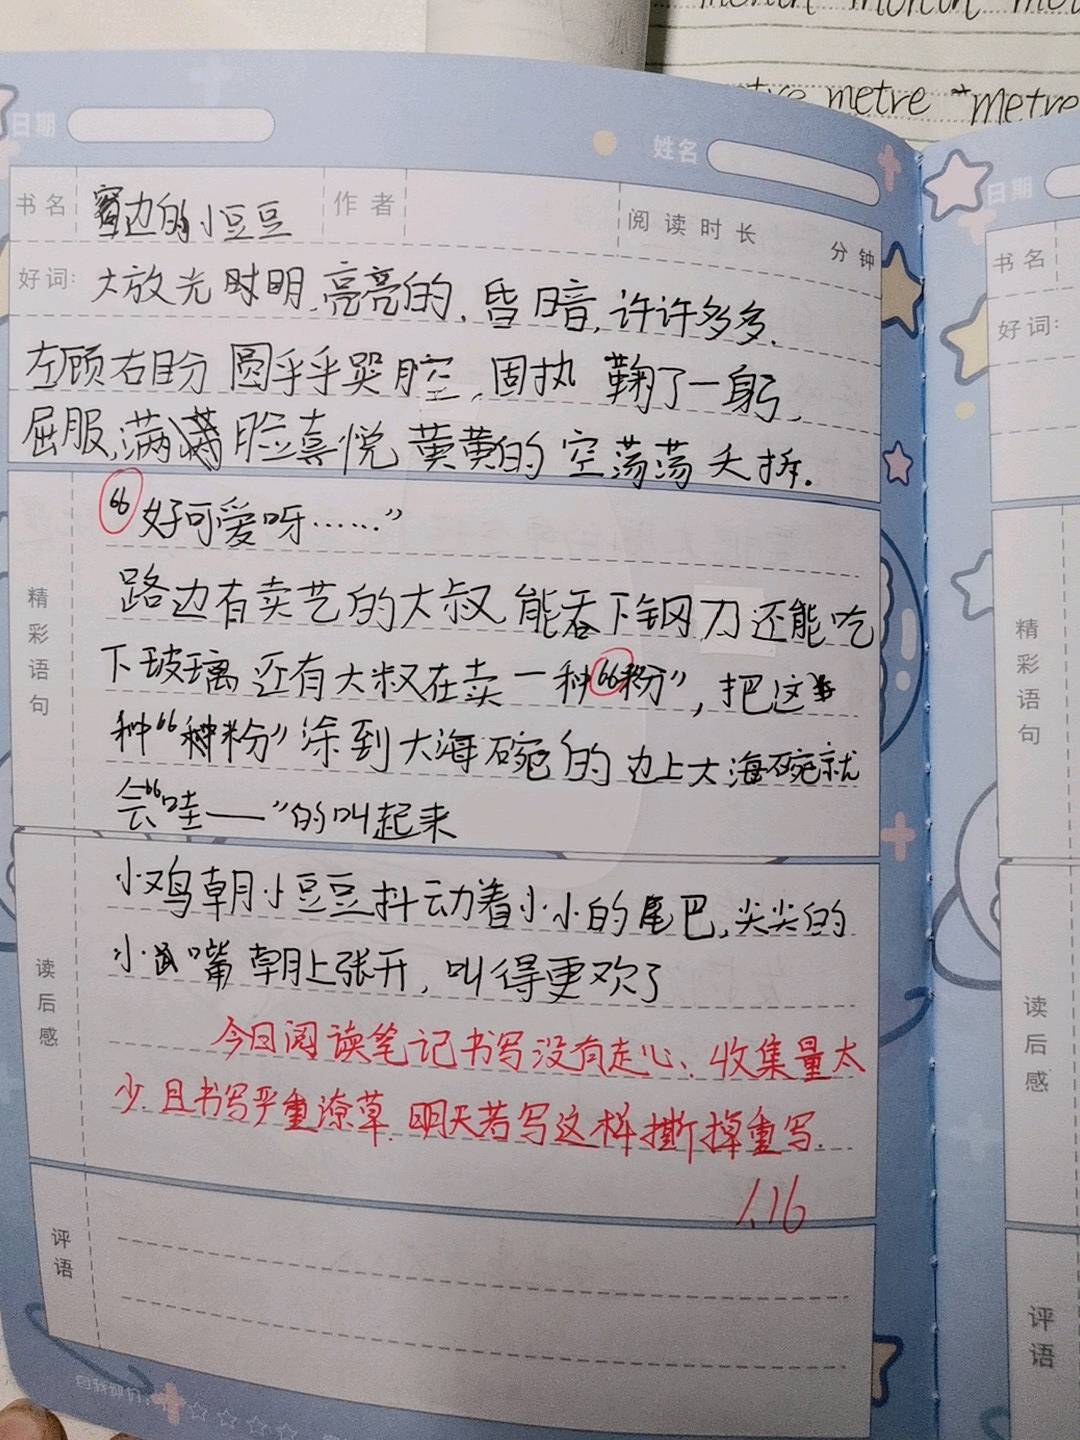 metre metre
日期
姓名
日期
书名 窗边的小豆豆 作者 阅读时长 分钟
好词: 大放光明、亮亮的、昏暗,许许多多.
左顾右盼 圆乎乎哭腔,固执 鞠了一躬,
屈服,满满脸喜悦 黄黄的 空荡荡 夭折.
精彩语句
“好可爱呀……”
路边有卖艺的大叔 能吞下钢刀还能吃
下玻璃 还有大叔在卖一种“粉”,把这
种“种粉”涂到大海碗的边上大海碗就
会“哇——”的叫起来
读后感
小鸡朝小豆豆抖动着小小的尾巴,尖尖的
小 嘴 朝上张开,叫得更欢了
今日阅读笔记书写没有走心、收集量太
少.且书写严重潦草.明天若写这样撕掉重写.
1.16
评语
书名
好词:
精彩语句
读后感
评语